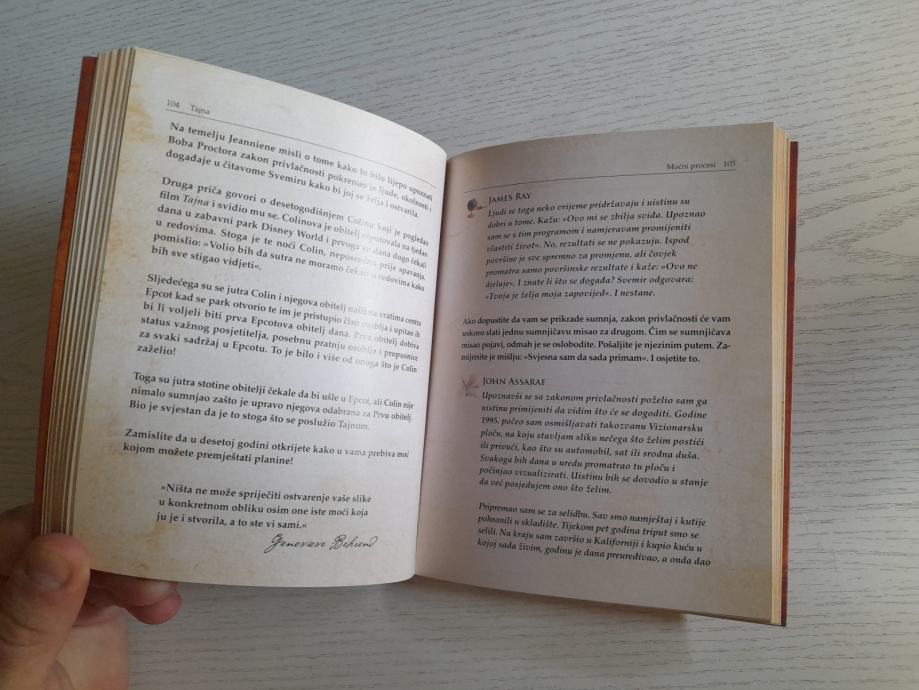 104 Tajna
Na temelju Jeanniene misli o tome kako bi bilo lijepo upoznati
Boba Proctora zakon privlačnosti pokrenuo je ljude, okolnosti i
događaje u čitavome Svemiru kako bi joj se želja i ostvarila.
Druga priča govori o desetogodišnjem Colinu koji je pogledao
film Tajna i svidio mu se. Colinova je obitelj otputovala na tjedan
dana u zabavni park Disney World i prvoga su dana dugo čekali
u redovima. Stoga je te noći Colin, neposredno prije spavanja,
pomislio: »Volio bih da sutra ne moramo čekati u redovima kako
bih sve stigao vidjeti«.
Sljedećega su se jutra Colin i njegova obitelj našli na vratima centra
Epcot kad se park otvorio te im je pristupio član osoblja i upitao ih
bi li voljeli biti prva Epcotova obitelj dana. Prva obitelj dobiva
status važnog posjetitelja, posebnu pratnju osoblja i propusnice
za svaki sadržaj u Epcotu. To je bilo i više od onoga što je Colin
zaželio!
Toga su jutra stotine obitelji čekale da bi ušle u Epcot, ali Colin nije
nimalo sumnjao zašto je upravo njegova odabrana za Prvu obitelj.
Bio je svjestan da je to stoga što se poslužio Tajnom.
Zamislite da u desetoj godini otkrijete kako u vama prebiva moć
kojom možete premještati planine!
»Ništa ne može spriječiti ostvarenje vaše slike
u konkretnom obliku osim one iste moći koja
ju je i stvorila, a to ste vi sami.«
Genevieve Behrend
Moćni procesi 105
JAMES RAY
Ljudi se toga neko vrijeme pridržavaju i uistinu su
dobri u tome. Kažu: »Ovo mi se zbilja sviđa. Upoznao
sam se s tim programom i namjeravam promijeniti
vlastiti život«. No, rezultati se ne pokazuju. Ispod
površine je sve spremno za promjenu, ali čovjek
promatra samo površinske rezultate i kaže: »Ovo ne
djeluje«. I znate li što se događa? Svemir odgovara:
»Tvoja je želja moja zapovijed«. I nestane.
Ako dopustite da vam se prikrade sumnja, zakon privlačnosti će vam
uskoro slati jednu sumnjičavu misao za drugom. Čim se sumnjičava
misao pojavi, odmah je se oslobodite. Pošaljite je njezinim putem. Za-
mijenite je mišlju: »Svjesna sam da sada primam«. I osjetite to.
JOHN ASSARAF
Upoznavši se sa zakonom privlačnosti poželio sam ga
uistinu primijeniti da vidim što će se dogoditi. Godine
1995. počeo sam osmišljavati takozvanu Vizionarsku
ploču, na koju stavljam sliku nečega što želim postići
ili privući, kao što su automobil, sat ili srodna duša.
Svakoga bih dana u uredu promatrao tu ploču i
počinjao vizualizirati. Uistinu bih se dovodio u stanje
da već posjedujem ono što želim.
Pripremao sam se za selidbu. Sav smo namještaj i kutije
pohranili u skladište. Tijekom pet godina triput smo se
selili. Na kraju sam završio u Kaliforniji i kupio kuću u
kojoj sada živim, godinu je dana preuređivao, a onda dao